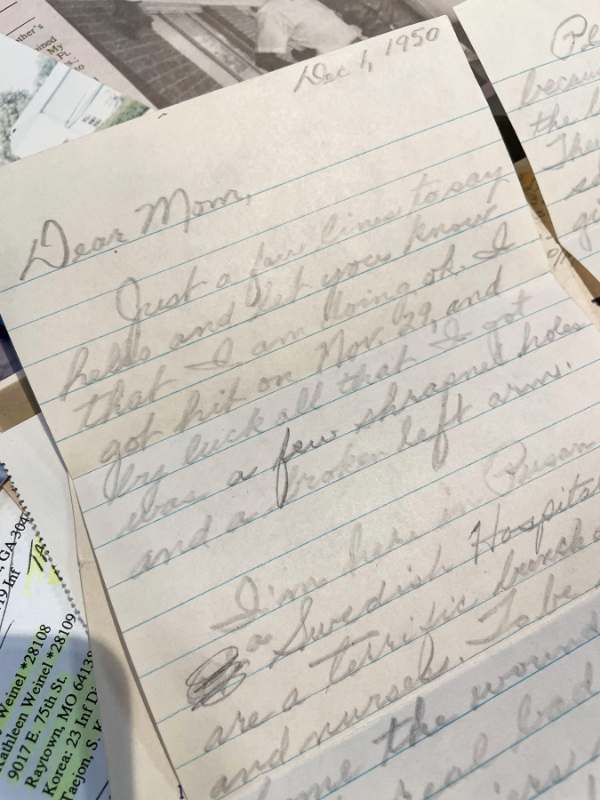 Dec 1, 1950
Dear Mom,
Just a few lines to say
hello and let you know
that I am doing ok. I
got hit on Nov. 29, and
by luck all that I got
was a few shrapnel holes
and a broken left arm.
I'm here in Pusan
a Swedish Hospital
are a terrific bunch
and nurses. To be
the wound
real bad
because
the
9 Inf
, GA 304
Weinel *28108
Kathleen Weinel *28109
9017 E. 75th St.
Raytown, MO 64138
Korea: 23 Inf Di
Taejon, S. K